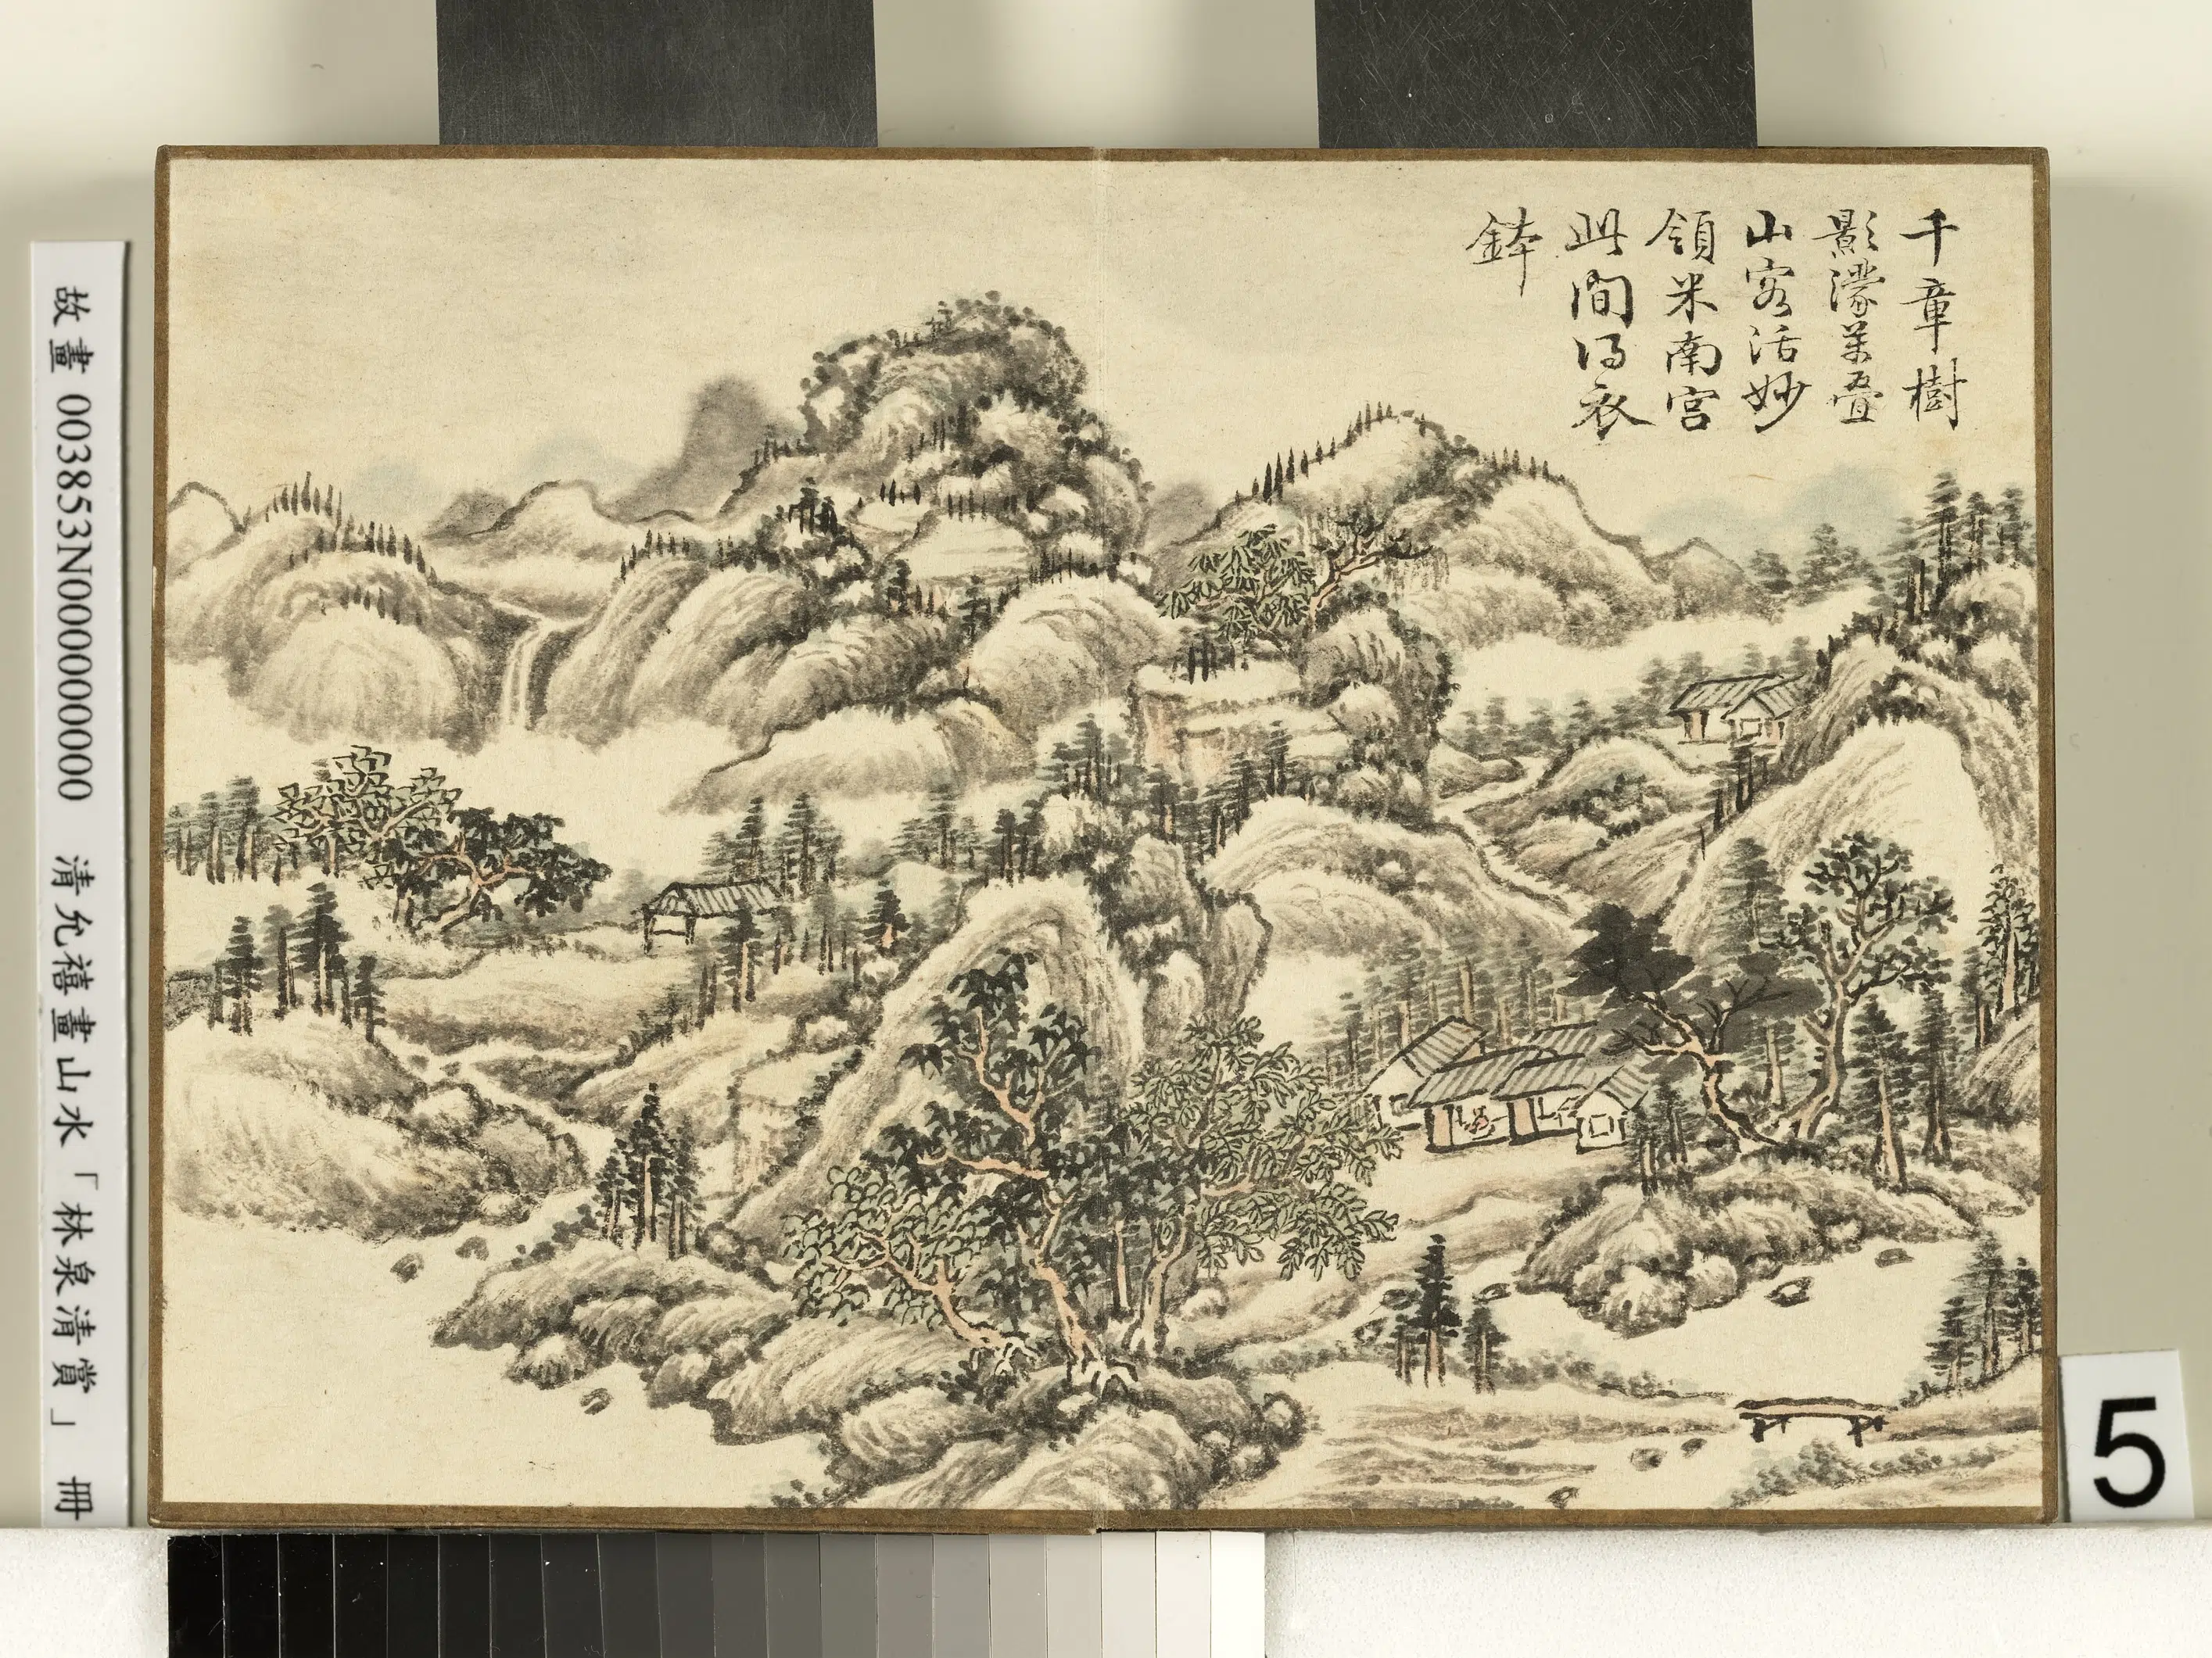 千章樹
影濛萬叠
山容活妙
領米南宮
此間得衣
鉢
故畫 003853N000000000 清允禧畫山水「林泉清賞」 冊
5